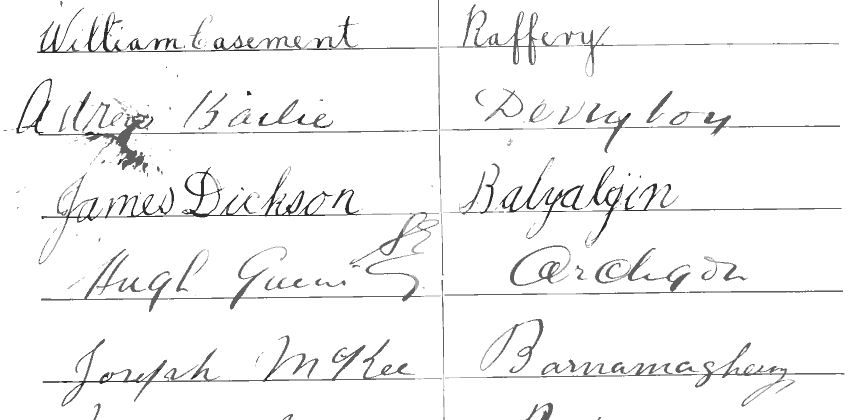 William Casement Raffery
Andrew Bailie Derryboy
James Dickson Balyalgin
Hugh Ardigon
Joseph McKee Barnamaghery